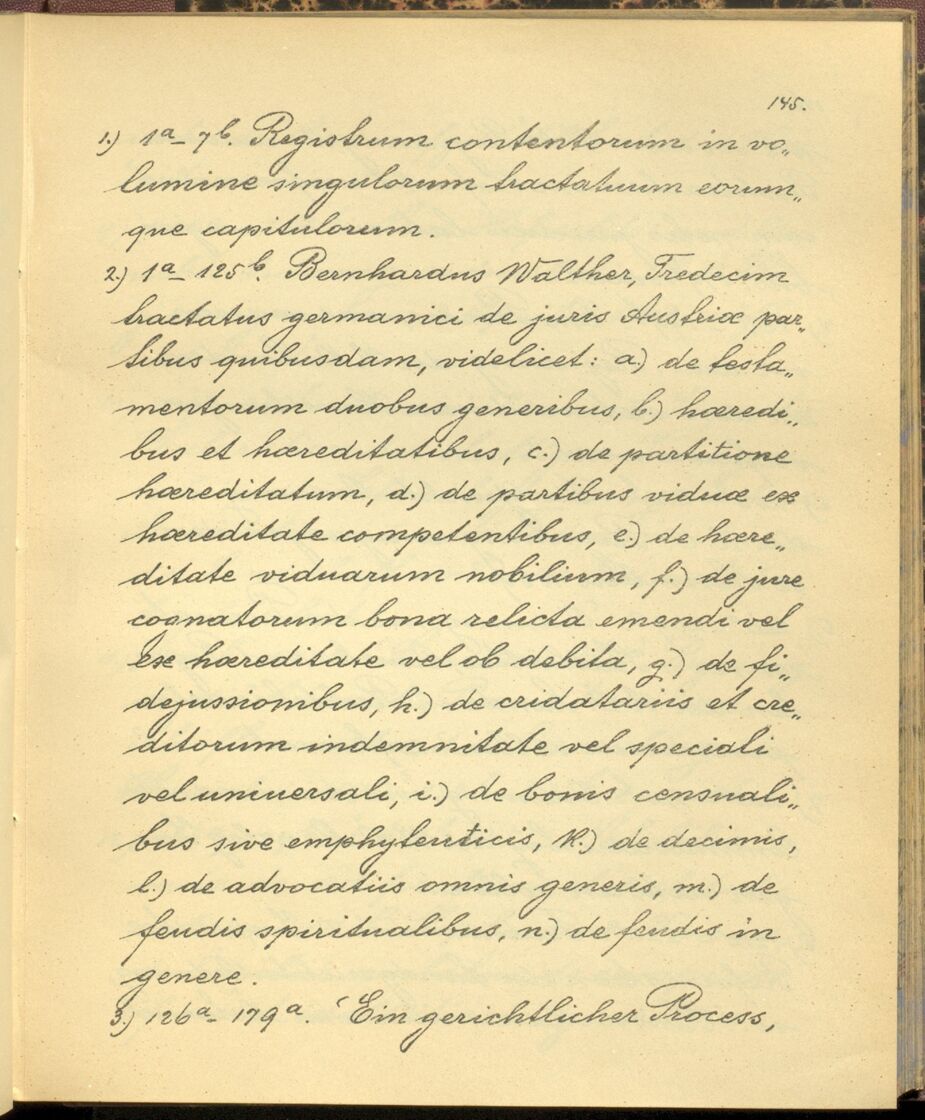 145.
1.) 1a– 7b. Registrum contentorum in vo„
lumine singulorum tractatuum eorum„
que capitulorum.
2.) 1a– 125b. Bernhardus Walther, Tredecim
tractatus germanici de juris Austriæ par„
tibus quibusdam, videlicet: a.) de testa„
mentorum duobus generibus, b.) hæredi„
bus et hæreditatibus, c.) de partitione
hæreditatum, d.) de partibus viduæ ex
hæreditate competentibus, e.) de hære„
ditate viduarum nobilium, f.) de jure
cognatorum bona relicta emendi vel
ex hæreditate vel ob debita, g.) de fi„
dejussionibus, h.) de cridatariis et cre„
ditorum indemnitate vel speciali
vel universali, i.) de bonis censuali„
bus sive emphyteuticis, k.) de decimis,
l.) de advocatiis omnis generis, m.) de
feudis spiritualibus, n.) de feudis in
genere.
3.) 126a– 179a. ‘Ein gerichtlicher Process,